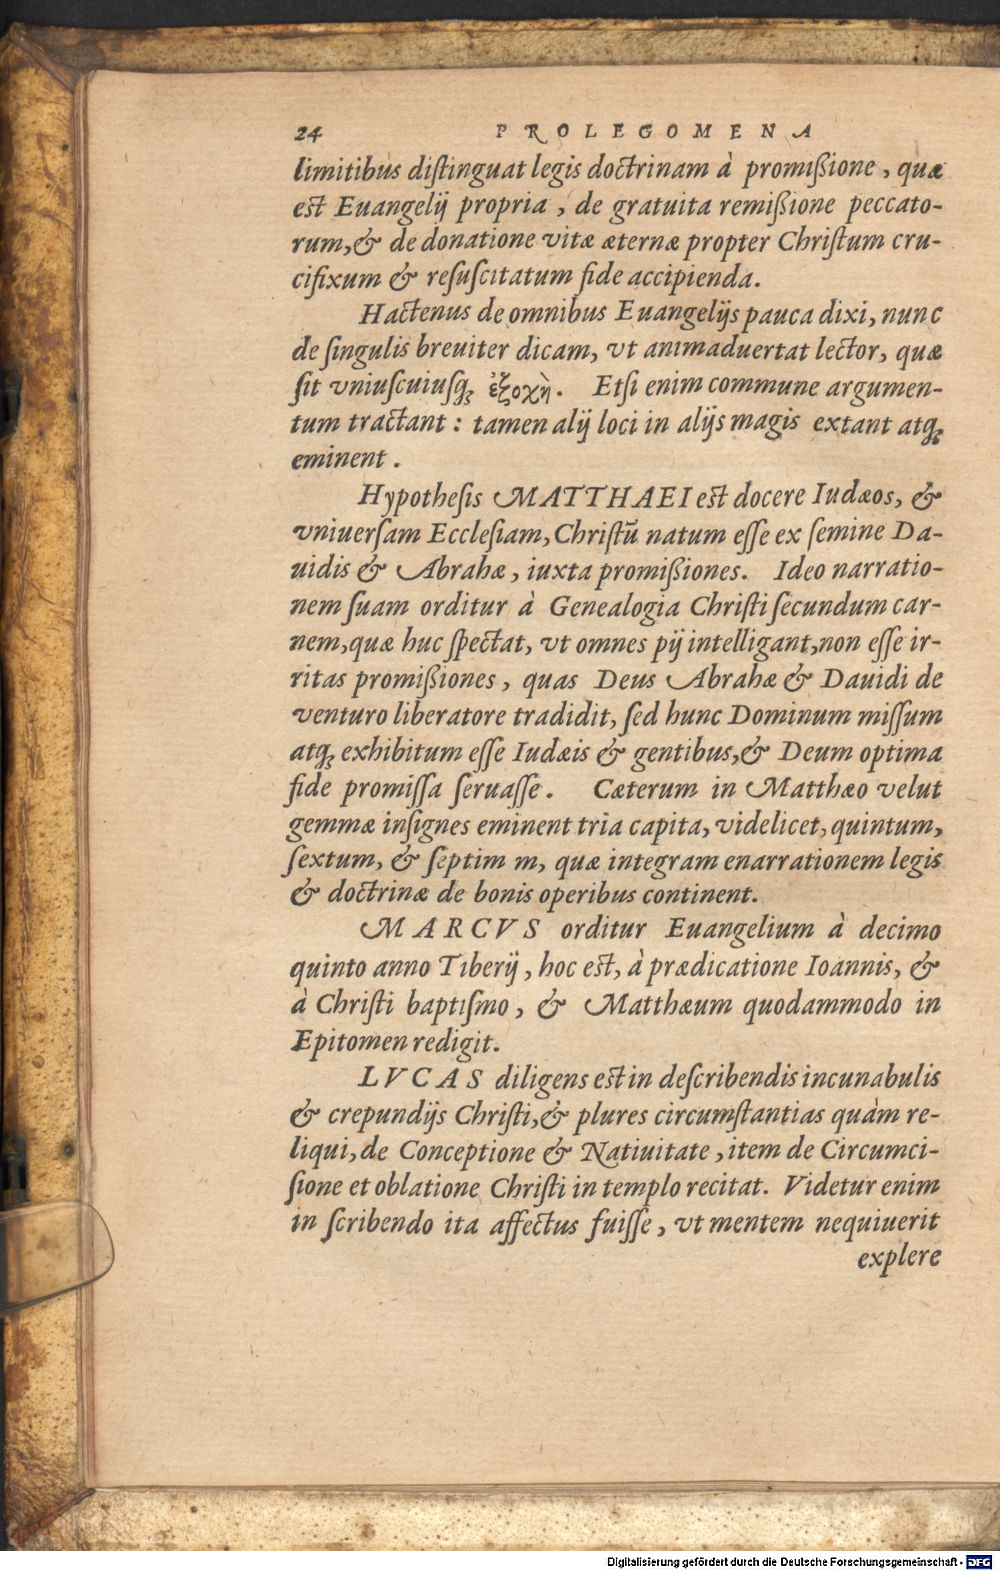 24 PROLEGOMENA
limitibus distinguat legis doctrinam à promißione, quæ
est Euangelij propria, de gratuita remißione peccato-
rum, & de donatione vitæ æternæ propter Christum cru-
cifixum & resuscitatum fide accipienda.
Hactenus de omnibus Euangelijs pauca dixi, nunc
de singulis breuiter dicam, vt animaduertat lector, quæ
sit vniuscuiusq; ἐξοχὴ. Etsi enim commune argumen-
tum tractant: tamen alij loci in alijs magis extant atq;
eminent.
Hypothesis MATTHAEI est docere Iudæos, &
vniuersam Ecclesiam, Christũ natum esse ex semine Da-
uidis & Abrahæ, iuxta promißiones. Ideo narratio-
nem suam orditur à Genealogia Christi secundum car-
nem, quæ huc spectat, vt omnes pij intelligant, non esse ir-
ritas promißiones, quas Deus Abrahæ & Dauidi de
venturo liberatore tradidit, sed hunc Dominum missum
atq; exhibitum esse Iudæis & gentibus, & Deum optima
fide promissa seruasse. Cæterum in Matthæo velut
gemmæ insignes eminent tria capita, videlicet, quintum,
sextum, & septim m, quæ integram enarrationem legis
& doctrinæ de bonis operibus continent.
MARCVS orditur Euangelium à decimo
quinto anno Tiberij, hoc est, à prædicatione Ioannis, &
à Christi baptismo, & Matthæum quodammodo in
Epitomen redigit.
LVCAS diligens est in describendis incunabulis
& crepundijs Christi, & plures circumstantias quàm re-
liqui, de Conceptione & Natiuitate, item de Circumci-
sione et oblatione Christi in templo recitat. Videtur enim
in scribendo ita affectus fuisse, vt mentem nequiuerit
explere
Digitalisierung gefördert durch die Deutsche Forschungsgemeinschaft - DFG